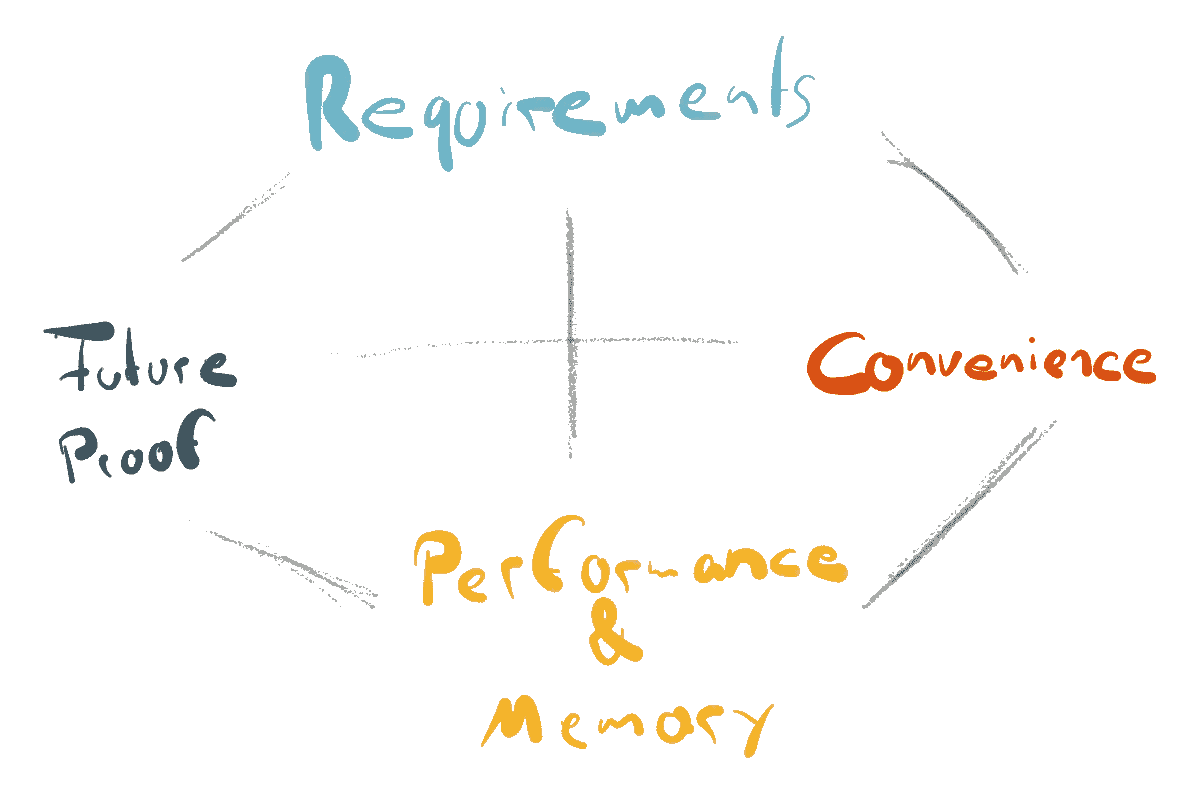 Requirements
Future
Proof
Convenience
Performance
&
Memory